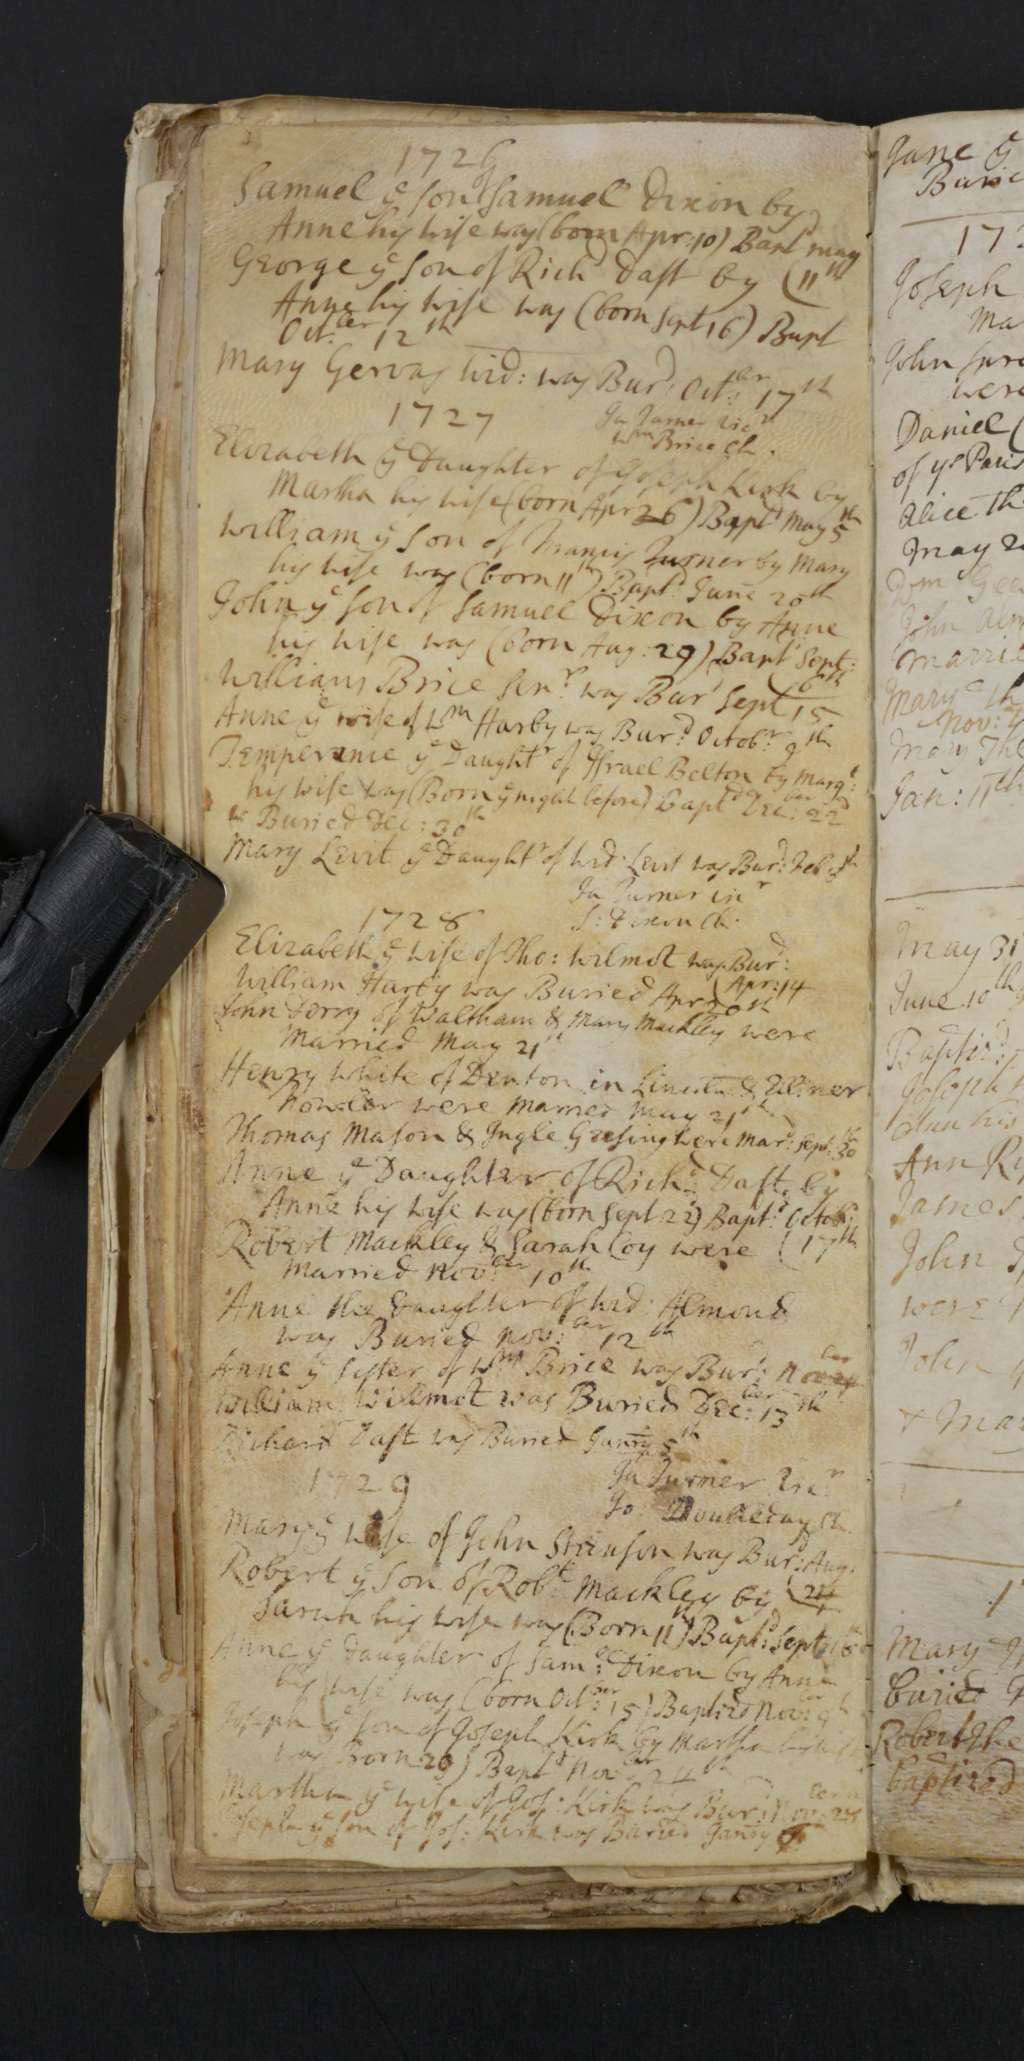 1726
Samuel ye son of Samuel Dixon by
Anne his wife was (born Apr: 10) Bapt may
George ye Son of Richd Daft by (11th
Anne his wife was (born Sept 16) Bapt
Octber 12th
Mary Gervas wid: was Burd: Octber 17th
1727
Ja Turner Vicr
Wm Brice Ch.
Elizabeth ye Daughter of Joseph Kirk by
Martha his wife (born Apr 26) Baptd May 5th
William ye Son of Francis Turner by Mary
his wife was (born 11th) Bapt: June 20th
John ye Son of Samuel Dixon by Anne
his wife was (born Aug: 29) Bapt Sept:
6th
William Brice Senr was Burd Sept 15
Anne ye wife of Wm Harby was Burd Octobr 9th
Temperance ye Daughtr of Israel Belton by Margt:
his wife was (Born ye night before) Baptd Decber: 22d
& Buried Dec: 30th
Mary Levit ye Daughtr of wid: Levit was Burd: Feb
Ja Turner Vicr
S: Dixon Ch:
1728
Elizabeth ye wife of Tho: Wilmot was Burd:
(Apr: 14
William Harby was Buried Apr 20th
John Derry of Waltham & Mary Mackley were
Married May 21st
Henry White of Denton in Lincoln & Elliner
were Married May 21st
Thomas Mason & Ingle Goesing were Mard: Sept: 30th
Anne ye Daughter of Richd: Daft by
Anne his wife was (born Sept 22) Baptd: Octobr:
Robert Mackley & Sarah Coy were (17th
Married Novber 10th
Anne the Daughter of wid: Almond
was Buried Nov:ber 12th
Anne ye sister of Wm Brice was Burd: Novber
William Wilmot was Buried Dec:ber 13th
Richard Daft was Buried Janry 5th
Ja Turner Vicr
Jo Doubleday Ch.
1729
Mary ye wife of John Steenson was Burd: Aug:
Robert ye Son of Robt: Mackley by (24
Sarah his wife was (Born 11th) Baptd: Sept
Anne ye Daughter of Saml: Dixon by Anne
his wife was (born Octber: 15) Baptized Novber 9
Joseph ye son of Joseph Kirk (by Martha his wife
was Born 20) Baptd Novber 24th
Martha ye wife of Jos: Kirk was Burd: Novber
Joseph ye son of Jos: Kirk was Buried Janry
June
17
Joseph
Ma
John
were
Daniel (
of ye Paris
Alice th
may 2
John
marrie
Mary
Nov:
Mary The
Jan: 11th
May 31
June 10th
Baptizd:
Joseph
Ann his
Ann Ry
James
John
were
John
& Mar
1
Mary
buried
Robert the
baptized